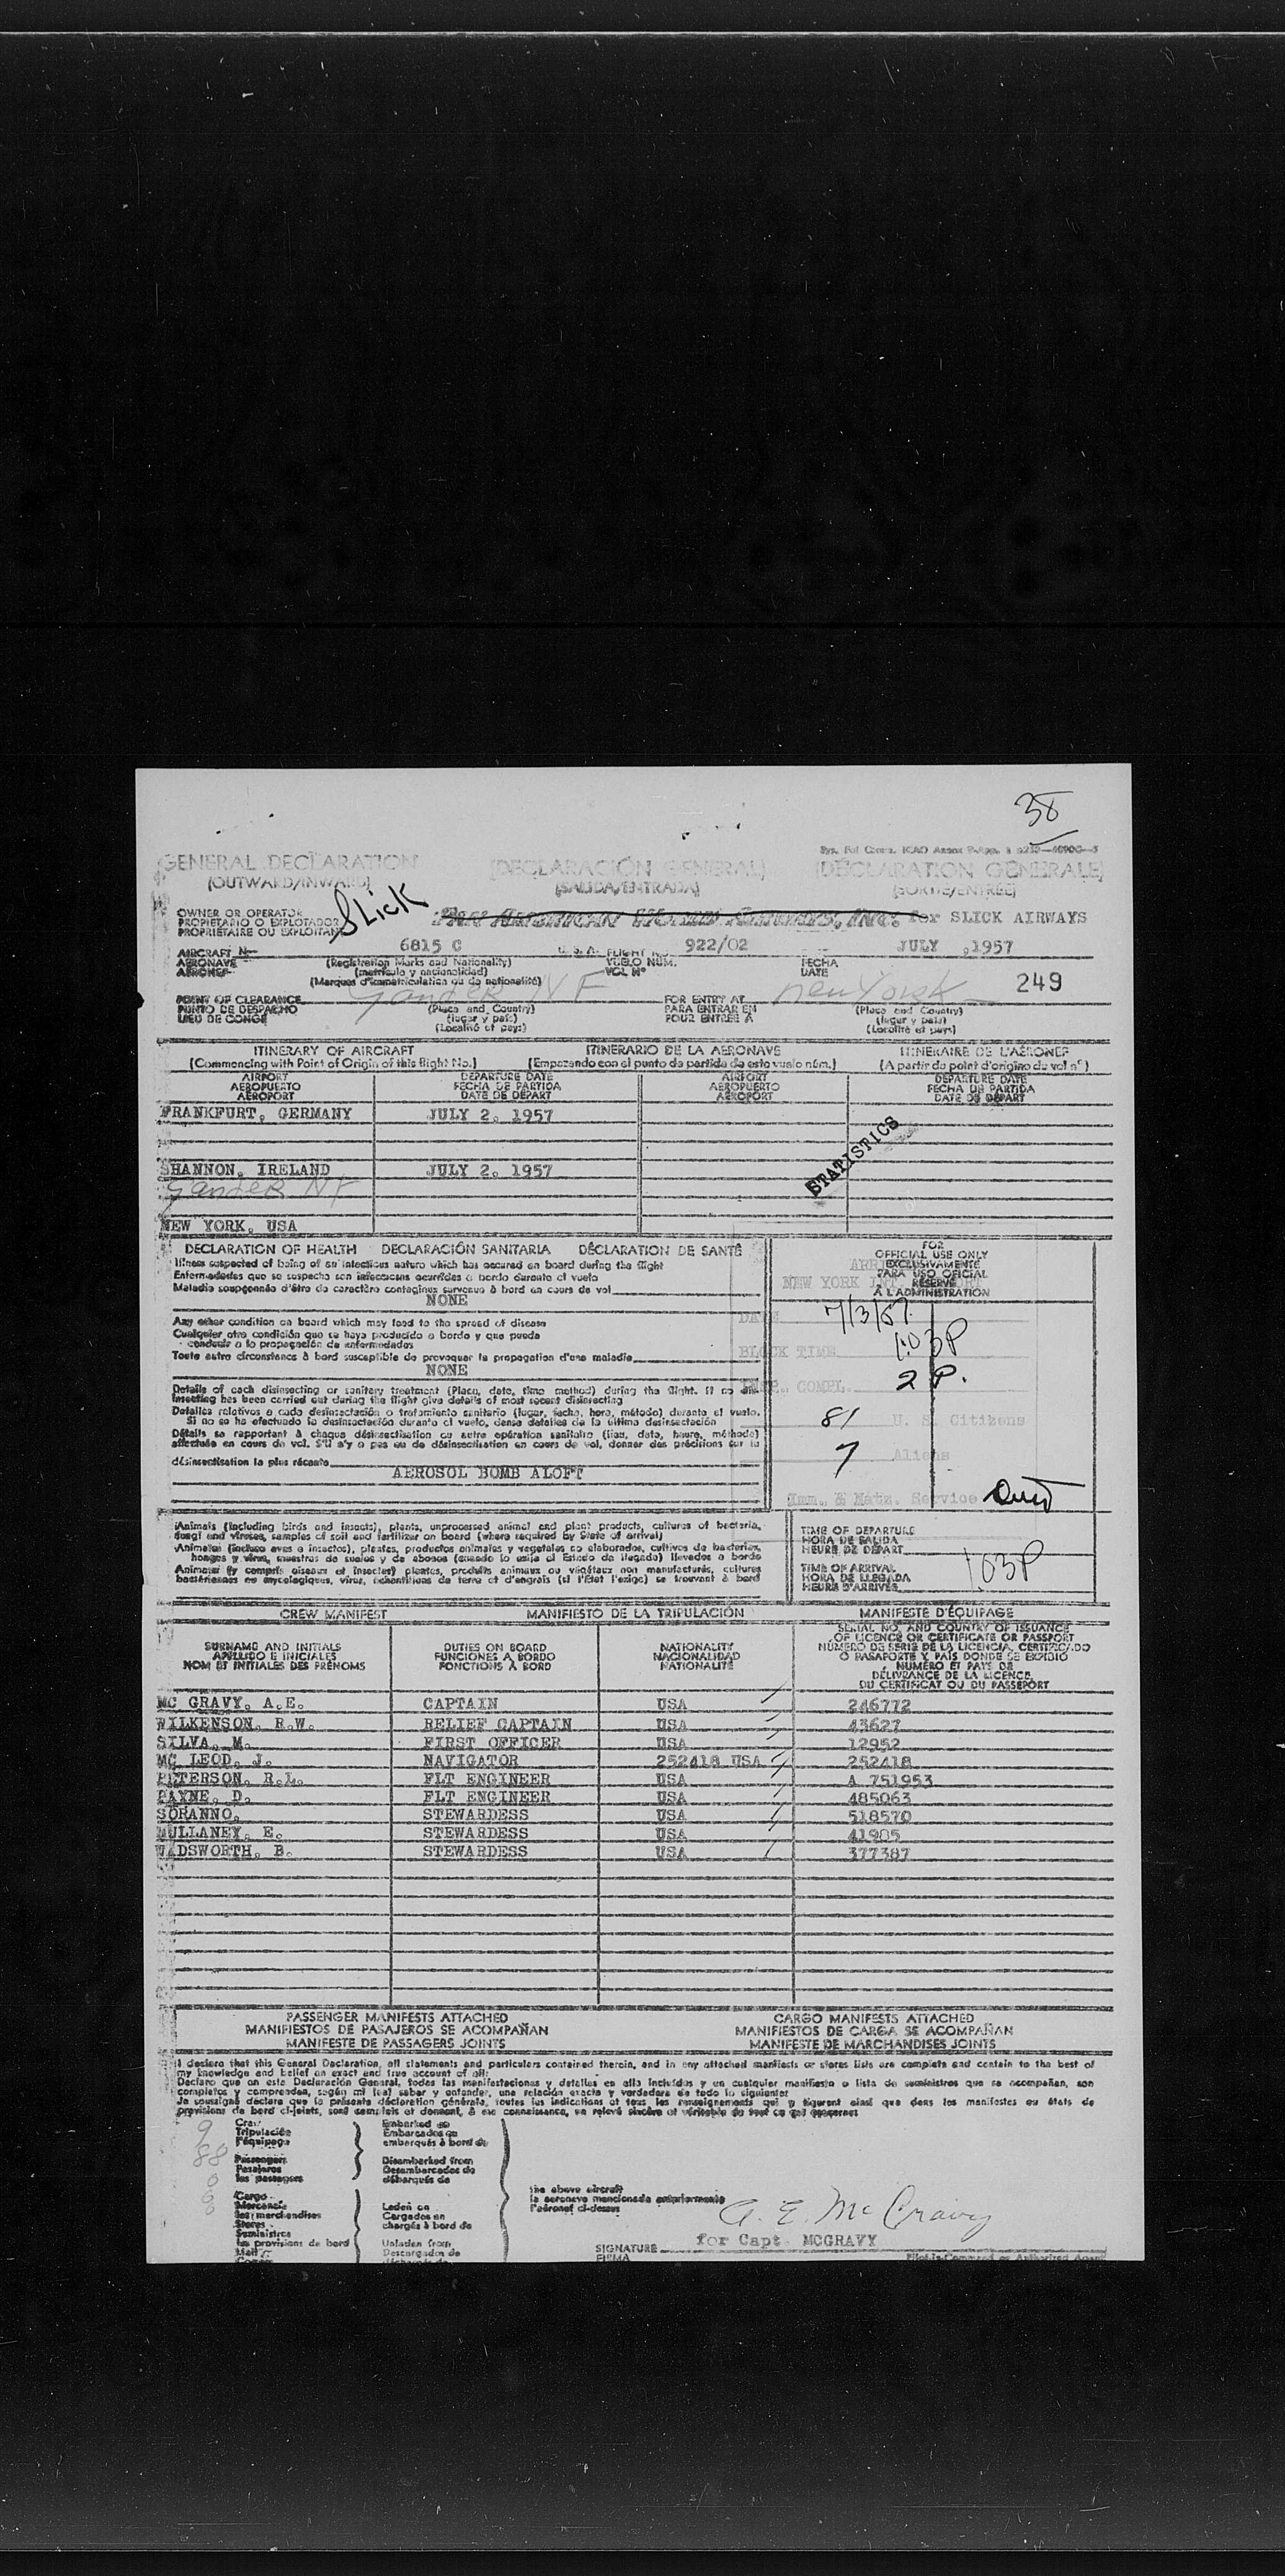 38
GENERAL DECLARATION (DECLARACIÓN GENERAL) (DÉCLARATION GENERALE)
(OUTWARD/INWARD) (SALIDA/ENTRADA) (SORTIE/ENTRÉE)
OWNER OR OPERATOR
PROPIETARIO O EXPLOTADOR
PROPRIETAIRE OU EXPLOITANT
Slick PAN AMERICAN WORLD AIRWAYS, INC. for SLICK AIRWAYS
AIRCRAFT 6815 C U.S.A. FLIGHT 922/02 JULY ,1957
AERONAVE (Registration Marks and Nationality) VUELO NUM. FECHA
AERONEF (matrícula y nacionalidad) VOL Nº DATE
(Marques d'immatriculation ou de nationalité)
249
POINT OF CLEARANCE Gander NF FOR ENTRY AT New York
PUNTO DE DESPACHO (Place and Country) PARA ENTRAR EN (Place and Country)
LIEU DE CONGÉ (lugar y país) POUR ENTRÉE A (lugar y país)
(Localité et pays) (Localité et pays)
ITINERARY OF AIRCRAFT ITINERARIO DE LA AERONAVE ITINERAIRE DE L'AÉRONEF
(Commencing with Point of Origin of this flight No.) (Empezando con el punto de partida de esto vuelo núm.) (A partir du point d'origine du vol nº)
AIRPORT DEPARTURE DATE AIRPORT DEPARTURE DATE
AEROPUERTO FECHA DE PARTIDA AEROPUERTO FECHA DE PARTIDA
AÉROPORT DATE DE DÉPART AÉROPORT DATE DE DÉPART
FRANKFURT, GERMANY JULY 2, 1957
STATISTICS
SHANNON, IRELAND JULY 2, 1957
Gander NF
NEW YORK, USA
DECLARATION OF HEALTH DECLARACIÓN SANITARIA DÉCLARATION DE SANTÉ
Illness suspected of being of an infectious nature which has occured on board during the flight
Enfermedades que se sospecha son infecciosas ocurridas a bordo durante el vuelo
Maladie soupçonnée d'être de caractère contagieux survenue à bord en cours de vol
NONE
Any other condition on board which may lead to the spread of disease
Cualquier otra condición que se haya producido a bordo y que pueda
conducir a la propagación de enfermedades
Toute autre circonstance à bord susceptible de provoquer la propagation d'une maladie
NONE
Details of each disinsecting or sanitary treatment (Place, date, time method) during the flight. If no disinsecting
insecting has been carried out during the flight give details of most recent disinsecting
Detalles relativos a cada desinsectación o tratamiento sanitario (lugar, fecha, hora, método) durante el vuelo.
Si no se ha efectuado la desinsectación durante el vuelo, dense detalles de la última desinsectación
Détails se rapportant à chaque désinsectisation ou autre opération sanitaire (lieu, date, heure, méthode)
effectuée en cours de vol. S'il n'y a pas eu de désinsectisation en cours de vol, donner des précisions sur la
désinsectisation la plus récente
AEROSOL BOMB ALOFT
FOR
OFFICIAL USE ONLY
EXCLUSIVAMENTE
PARA USO OFICIAL
RÉSERVÉ
A L'ADMINISTRATION
NEW YORK
DATE 7/3/57
BLOCK TIME 1:03P
COMPL. 2 P.
81 U. S. Citizens
7 Aliens
Imm. & Natz. Service
Animals (including birds and insects), plants, unprocessed animal and plant products, cultures of bacteria,
fungi and viruses, samples of soil and fertilizer on board (where required by State of arrival)
Animales (incluso aves e insectos), plantas, productos animales y vegetales no elaborados, cultivos de bacterias,
hongos y virus, muestras de suelos y de abonos (cuando lo exija el Estado de llegada) llevados a bordo
Animaux (y compris oiseaux et insectes) plantes, produits animaux ou végétaux non manufacturés, cultures
bactériennes ou mycologiques, virus, échantillons de terre et d'engrais (si l'État l'exige) se trouvant à bord
TIME OF DEPARTURE
HORA DE SALIDA
HEURE DE DÉPART
TIME OF ARRIVAL
HORA DE LLEGADA
HEURE D'ARRIVÉE
1:03P
CREW MANIFEST MANIFIESTO DE LA TRIPULACIÓN MANIFESTE D'ÉQUIPAGE
SURNAME AND INITIALS DUTIES ON BOARD NATIONALITY SERIAL NO. AND COUNTRY OF ISSUANCE
APELLIDO E INICIALES FUNCIONES A BORDO NACIONALIDAD OF LICENCE OR CERTIFICATE OR PASSPORT
NOM ET INITIALES DES PRÉNOMS FONCTIONS À BORD NATIONALITÉ NÚMERO DE SERIE DE LA LICENCIA, CERTIFICADO
O PASAPORTE Y PAÍS DONDE SE EXPIDIÓ
NUMÉRO ET PAYS DE
DÉLIVRANCE DE LA LICENCE,
DU CERTIFICAT OU DU PASSEPORT
MC GRAVY, A.E. CAPTAIN USA 246772
WILKENSON, R.W. RELIEF CAPTAIN USA 43627
SILVA, M. FIRST OFFICER USA 12952
MC LEOD, J. NAVIGATOR 252418 USA 252418
PETERSON, R.L. FLT ENGINEER USA A 751953
PAYNE, D. FLT ENGINEER USA 485063
SORANNO, STEWARDESS USA 518570
MULLANEY, E. STEWARDESS USA 41985
WADSWORTH, B. STEWARDESS USA 377387
PASSENGER MANIFESTS ATTACHED CARGO MANIFESTS ATTACHED
MANIFIESTOS DE PASAJEROS SE ACOMPAÑAN MANIFIESTOS DE CARGA SE ACOMPAÑAN
MANIFESTE DE PASSAGERS JOINTS MANIFESTE DE MARCHANDISES JOINTS
I declare that this General Declaration, all statements and particulars contained therein, and in any attached manifests or stores lists are complete and contain to the best of
my knowledge and belief an exact and true account of all:
Declaro que en esta Declaración General, todas las manifestaciones y detalles en ella incluidos y en cualquier manifiesto o lista de suministros que se acompañan, son
completos y comprenden, según mi leal saber y entender, una relación exacta y verdadera de todo lo siguiente:
Je soussigné déclare que la présente déclaration générale, toutes les indications et tous les renseignements qui y figurent ainsi que dans les manifestes ou états de
provisions de bord ci-joints, sont complets et donnent, à ma connaissance, un relevé sincère et véritable de tout ce qui concerne:
9 Crew Embarked on
Tripulación Embarcados en
l'équipage embarqués à bord de
88 Passengers Disembarked from
Pasajeros Desembarcados de
les passagers débarqués de
0 Cargo
Mercancía Laden on
les marchandises Cargados en
Stores chargés à bord de
Suministros
les provisions de bord Unladen from
Mail Descargados de
the above aircraft
la aeronave mencionada anteriormente
l'aéronef ci-dessus
A. E. McGravy
for Capt. MCGRAVY
SIGNATURE
FIRMA Pilot-in-Command or Authorized Agent